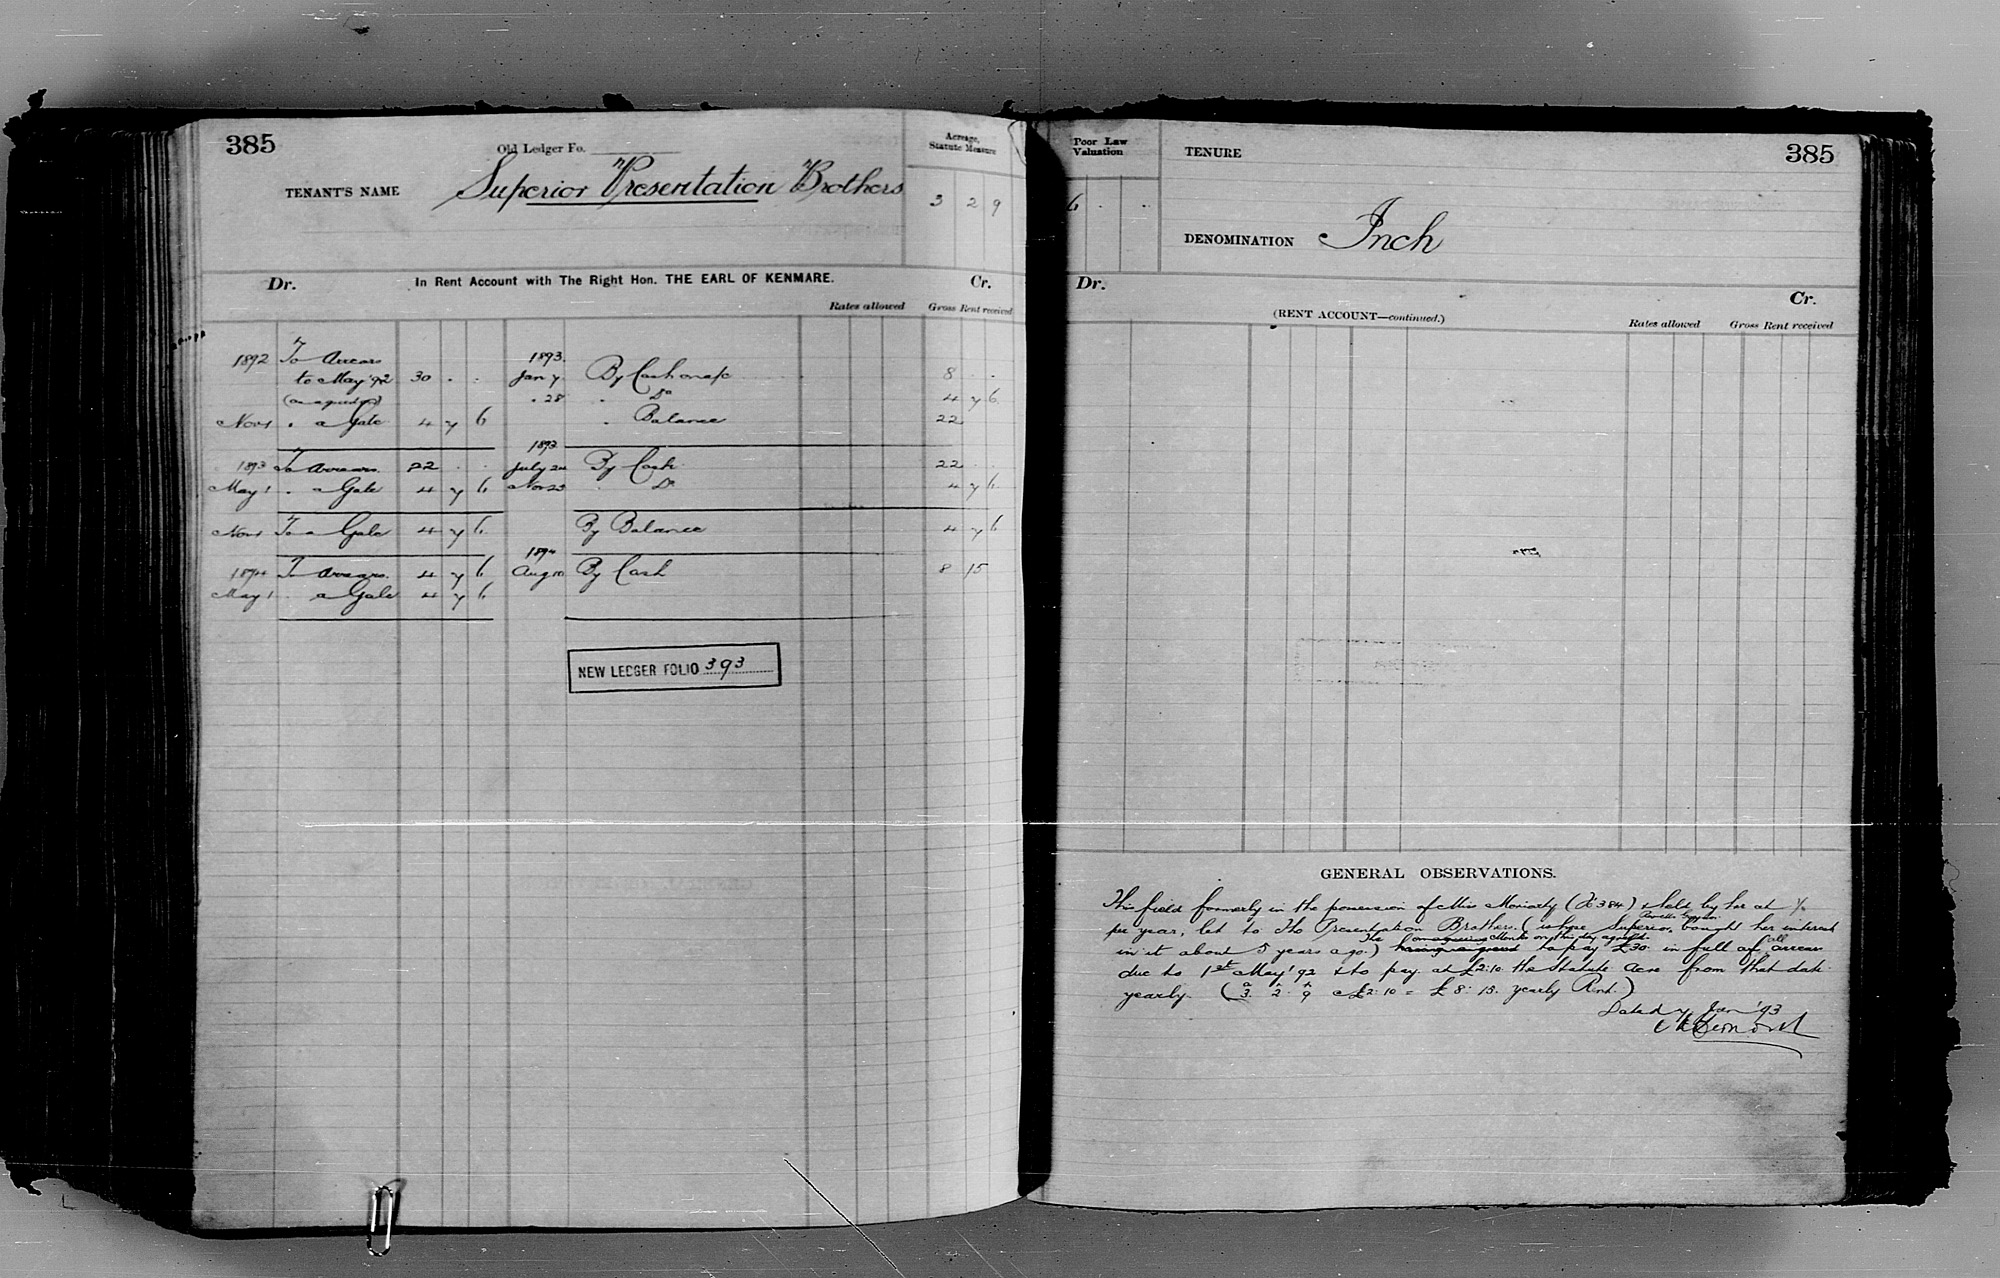 385
Old Ledger Fo.
TENANT'S NAME Superior Presentation Brothers
Acreage, Statute Measure
3 2 9
Dr. In Rent Account with The Right Hon. THE EARL OF KENMARE. Cr.
Rates allowed Gross Rent received
1892 To Arrears 1893
to May '92 30 . . Jan 7 By Cash on a/c 8 . .
(as agreed on) " 28 " Do 4 7 6
Nov 1 " a Gale 4 7 6 " Balance 22
1893
1893 To Arrears 22 . . July 24 By Cash 22
May 1 " a Gale 4 7 6 Nov 23 " Do 4 7 6
Nov 1 To a Gale 4 7 6 By Balance 4 7 6
1894
1894 To Arrears 4 7 6 Aug 10 By Cash 8 15
May 1 " a Gale 4 7 6
NEW LEDGER FOLIO 393
Poor Law Valuation
6 . .
TENURE 385
DENOMINATION Inch
Dr. Cr.
(RENT ACCOUNT—continued.)
Rates allowed Gross Rent received
GENERAL OBSERVATIONS.
This field formerly in the possession of Miss Moriarty (Fo 384) & held by her at
per year, let to the Presentation Brothers. (whose Superior, bought her interest
in it about 5 years ago.) The Monks on this day agreed to pay £30 in full of all arrears
due to 1st May '92 & to pay at £2:10 the Statute Acre from that date
yearly. (3a 2r 9p @ £2:10 = £8:15. yearly Rent.)
Dated 7 Jan '93